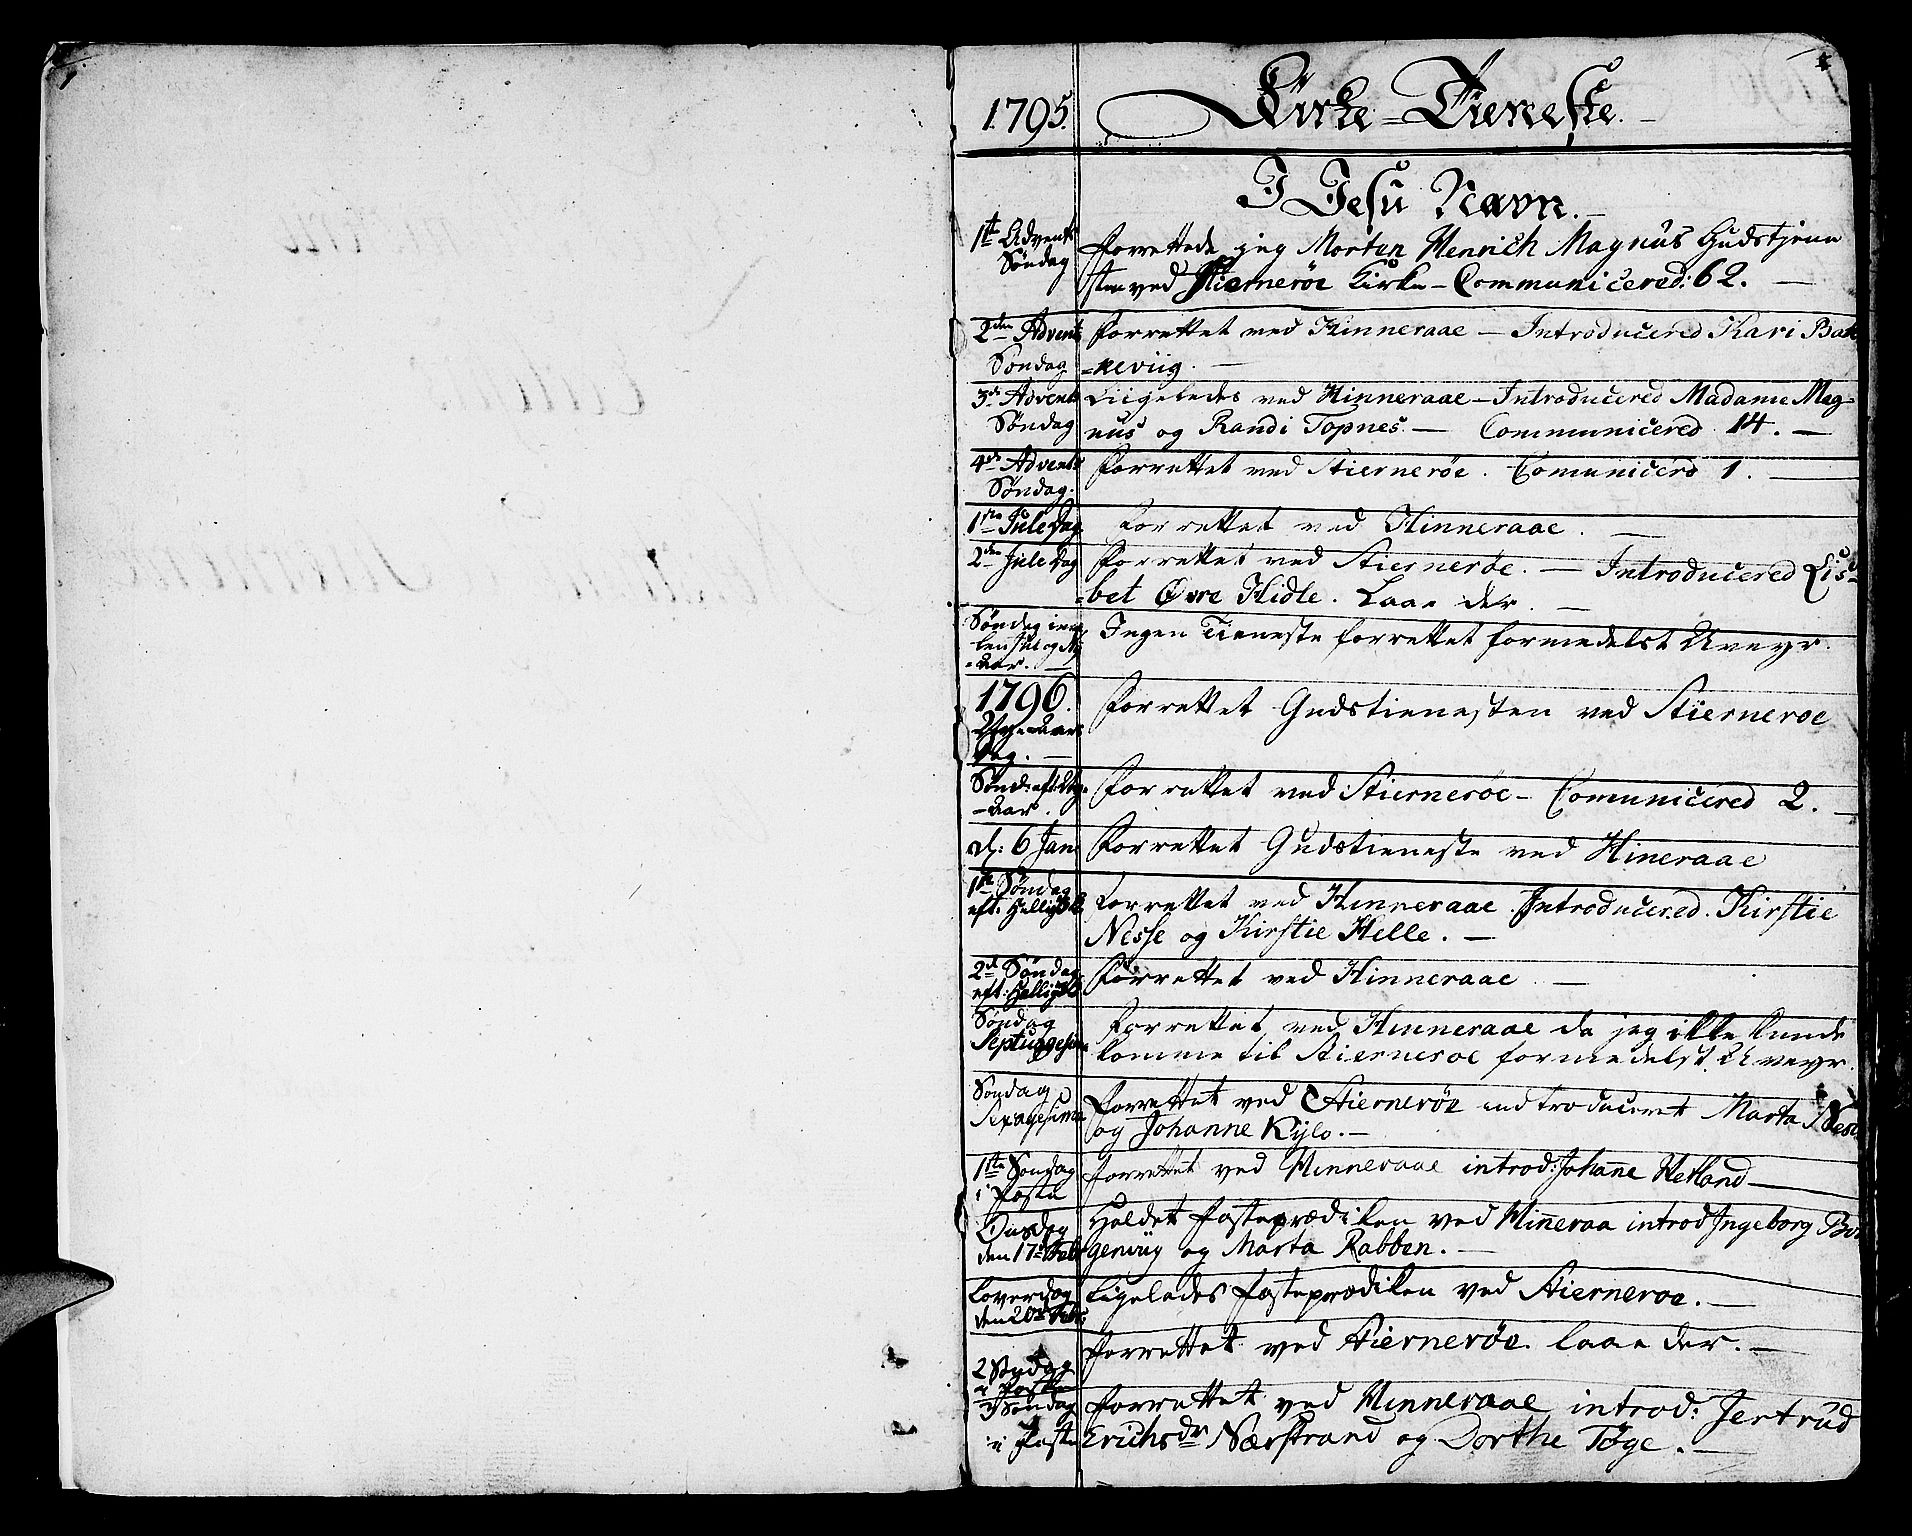 1795. Kirke-Tieneste.
I Jesu Navn.
1te Advents Søndag
forrettede jeg Morten Henrich Magnus Gudstjene
sten ved Stiernerøe Kirke - Communicered: 62.
2den Advents Søndag
Forrettet ved Hinneraae - Introducered Kari Bak
=neviig.
3die Advents Søndag
Liigeledes ved Hinneraae - Introducered Madame Mag=
nus og Randi Topnes. - Communicered 14.
4de Advents Søndag.
Forrettet ved Stiernerøe. Comunicerd 1.
1ste Jule Dag
Forrettet ved Hinneraae.
2den Jule Dag
Forrettet ved Stiernerøe. - Introducered Lis=
=bet Øvre Hidle. Laae der.
Søndag imel
len Jul og Nyt
=aar.
Ingen Tieneste forrettet formedelst Uveyr.
1796.
Nye-Aars
Dag.
Forrettet Gudstienesten ved Stierneroe
Sønd: eft: Nye
-Aar.
Forrettet ved Stiernerøe - Comunicered 2.
d: 6 Jan
Forrettet Gudstieneste ved Hineraae
1te Søndag
eft: Hellig3K
Forrettet ved Hinneraae. Introducered. Kirstie
Nesse og Kirstie Helle. -
2d Søndag
eft: Hellig3K
Forrettet ved Hinneraae -
Søndag
Septuagesima
Forrettet ved Hinneraae da jeg ikke kunde
komme til Stierneroe formedelst Uveyr.
Søndag
Sexagesima
Forrettet ved Stiernerøe indtroduceret Marta Nes
og Johanne Kylo. -
1ste Søndag
i Faste
forrettet ved Hinneraae introd: Johanne Hetland -
Onsdag
den 17de Febr
Holdet Fasteprædiken ved Hinneraa introd Ingeborg Bo
genviig og Marta Rabben. -
Løverdag
den 20de Febr:
Ligeledes Fasteprædiken ved Stierneroe. -
2 Søndag
i Faste
forrettet ved Stiernerøe. laae der. -
3 Søndag
i Faste
forrettet ved Hinneraae introd: Jertrud
Erichsdr Nærstrand og Dorthe Tøge. -